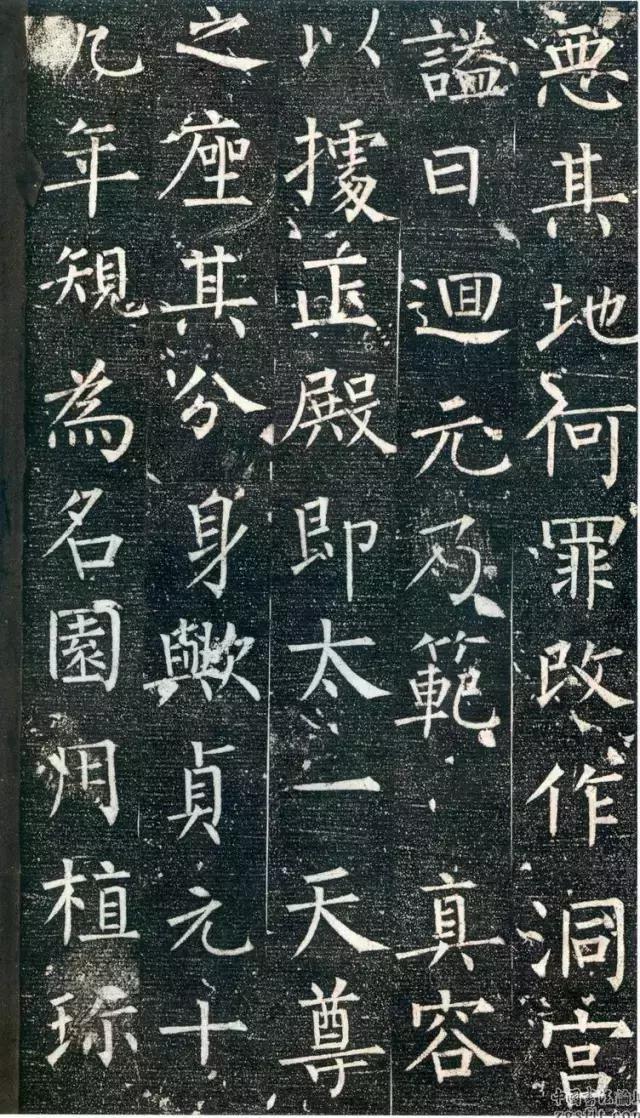 悪其地何罪改作洞宮
謚曰迴元乃範 真容
以據正殿即太一天尊
之座其分身歟貞元十
九年規為名園用植珎